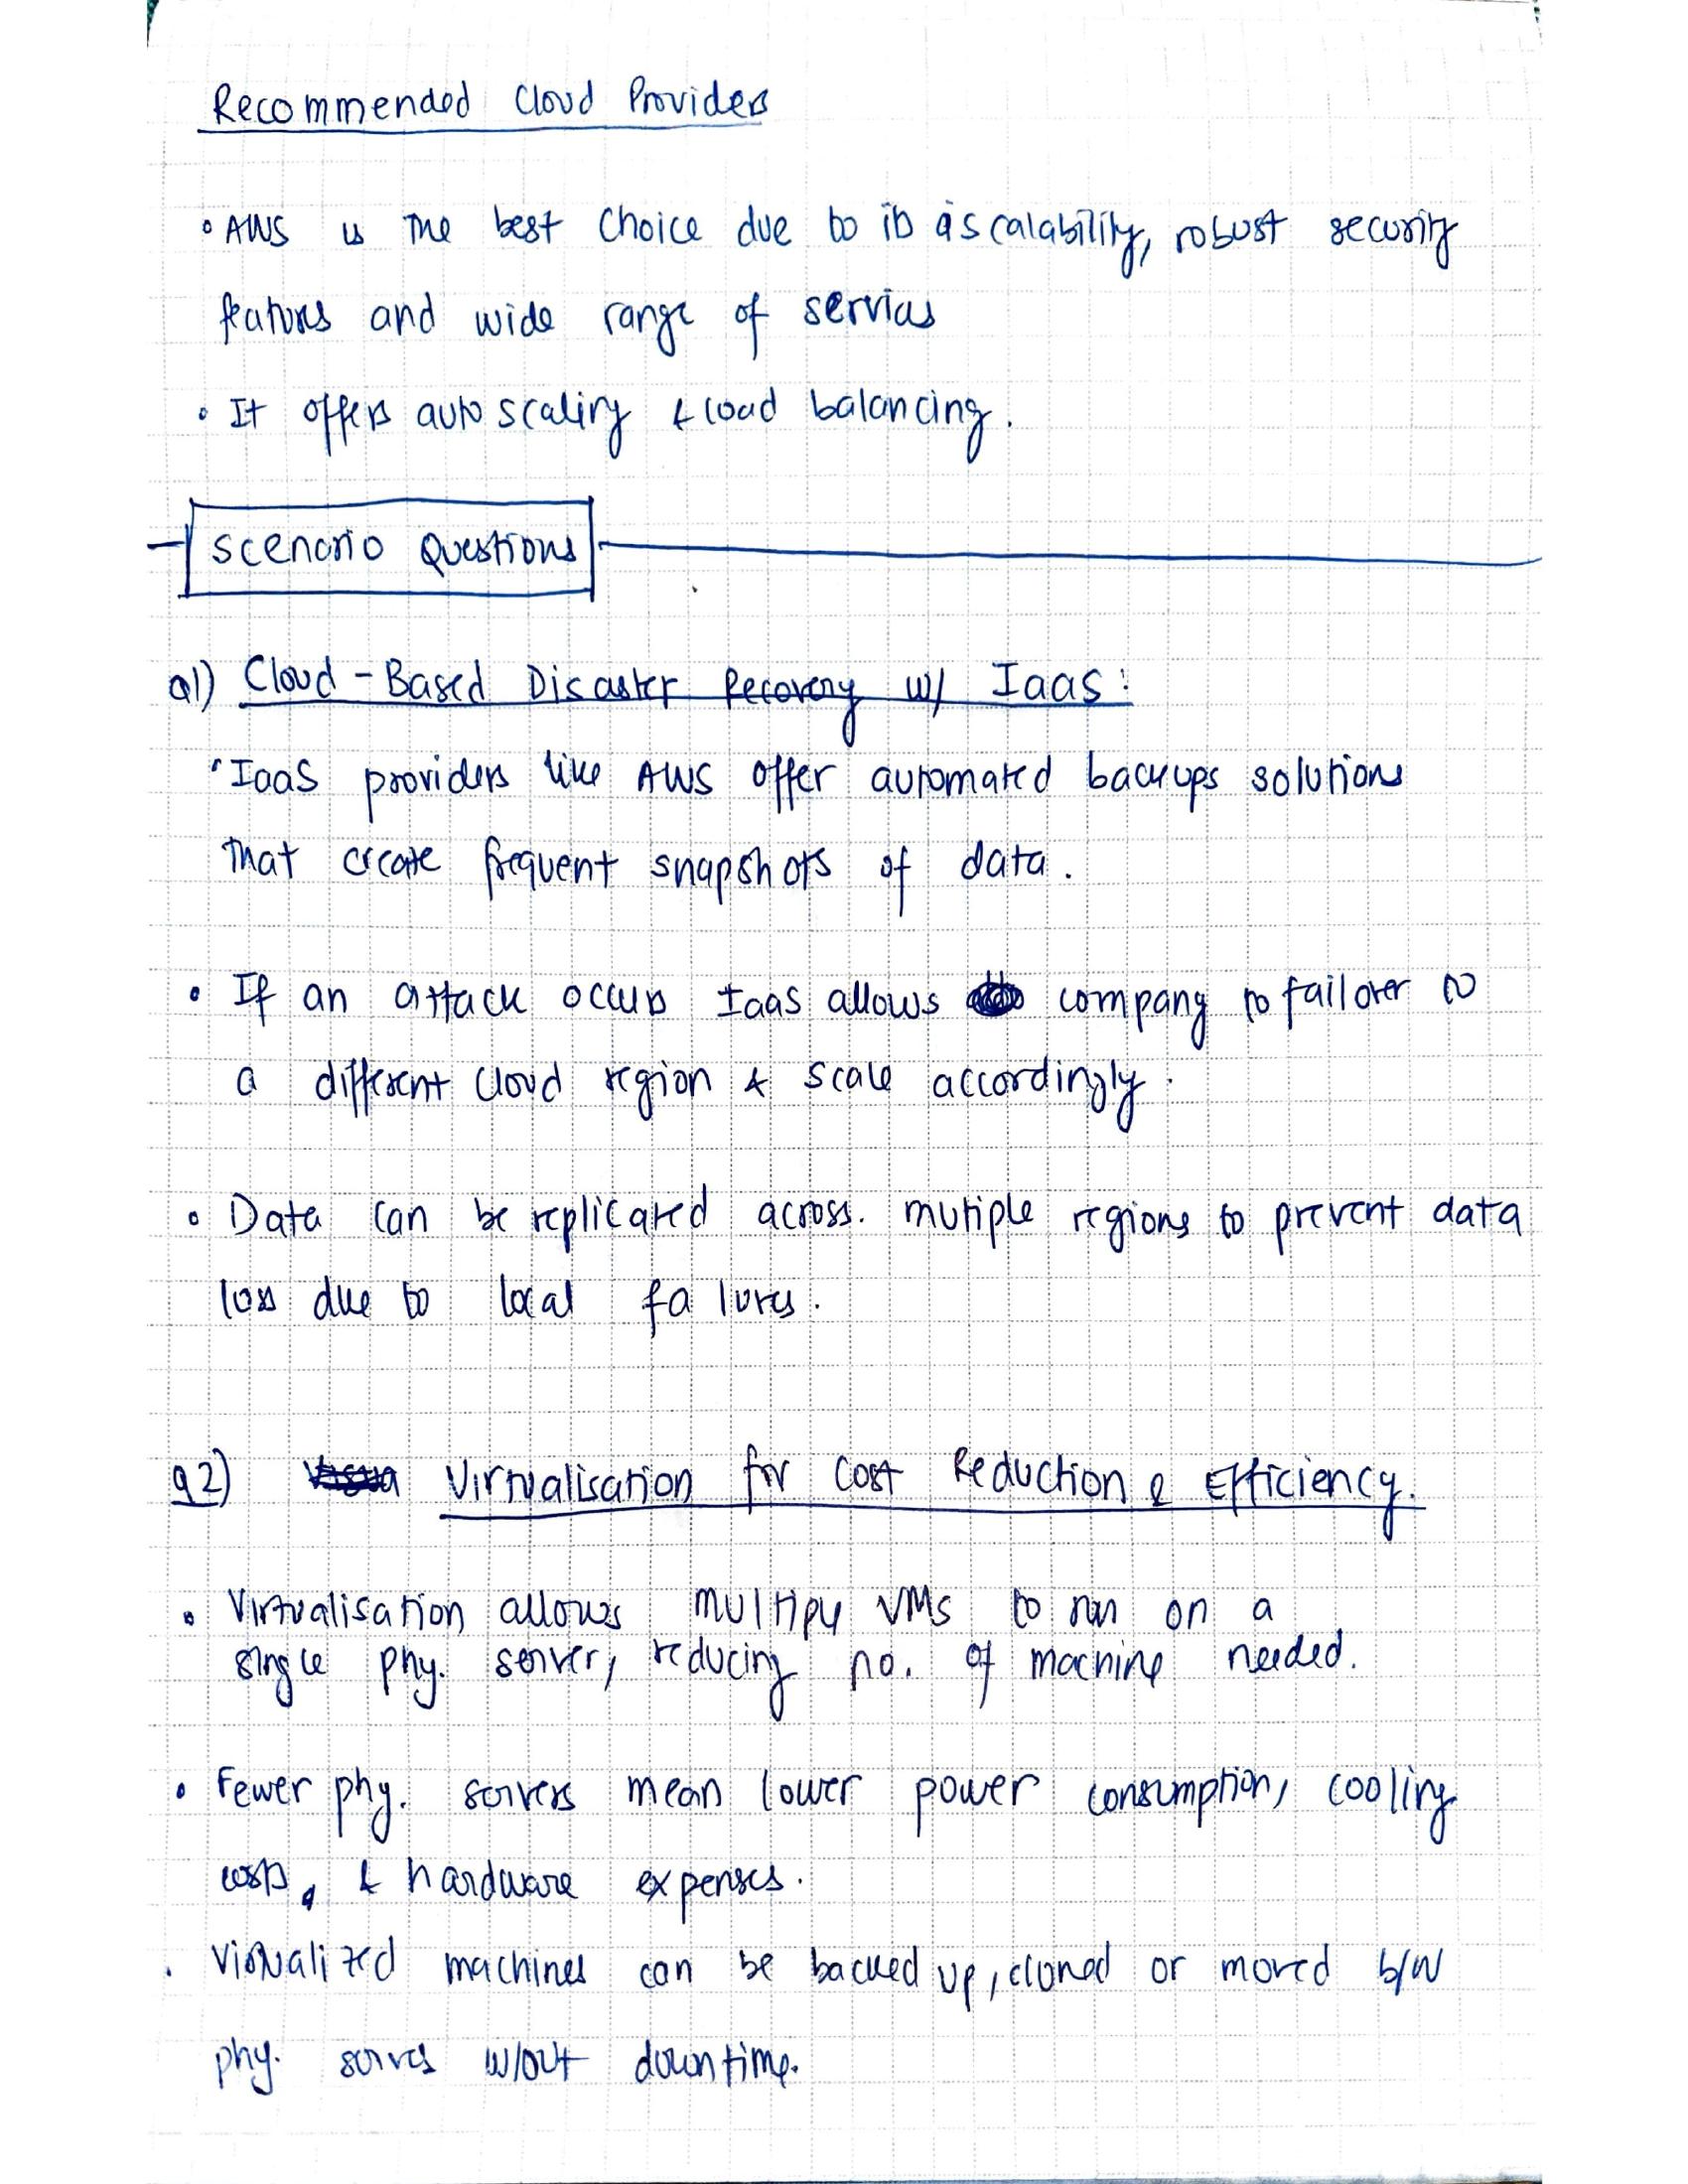 Recommended Cloud Providers
• AWS is the best choice due to its scalability, robust security
features and wide range of services
• It offers auto scaling & load balancing.
Scenario Questions
Q1) Cloud-Based Disaster Recovery w/ Iaas:
• IaaS providers like AWS offer automated backups solutions
that create frequent snapshots of data.
• If an attack occurs Iaas allows company to failover to
a different cloud region & scale accordingly.
• Data can be replicated across. mutiple regions to prevent data
loss due to local failures.
Q2) Virtualisation for Cost Reduction & Efficiency.
• Virtualisation allows multiply VMs to run on a
single phy. server, reducing no. of machine needed.
• Fewer phy. servers mean lower power consumption, cooling
costs, & hardware expenses.
• Virtualized machines can be backed up, cloned or moved b/w
phy. serves w/out downtime.